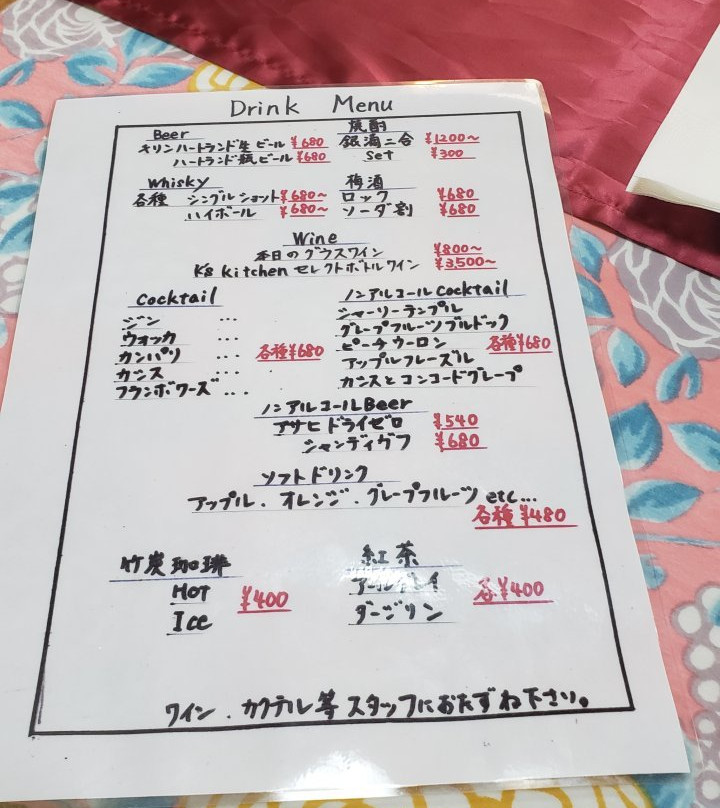 Drink Menu
Beer
キリンハートランド生ビール ¥680
ハートランド瓶ビール ¥680
焼酎
銀滴二合 ¥1200～
set ¥300
Whisky
各種 シングルショット ¥680～
ハイボール ¥680～
梅酒
ロック ¥680
ソーダ割 ¥680
Wine
本日のグラスワイン ¥800～
K's kitchen セレクトボトルワイン ¥3,500～
Cocktail
ジン ...
ウォッカ ...
カンパリ ... 各種¥680
カシス ...
フランボワーズ ...
ノンアルコールCocktail
シャーリーテンプル
グレープフルーツブルドック
ピーチウーロン 各種¥680
アップルフレーズル
カシスとコンコードグレープ
ノンアルコールBeer
アサヒドライゼロ ¥540
シャンディガフ ¥680
ソフトドリンク
アップル．オレンジ．グレープフルーツ etc...
各種 ¥480
竹炭珈琲
Hot ¥400
Ice
紅茶
アールグレイ 各¥400
ダージリン
ワイン．カクテル等スタッフにおたずね下さい。